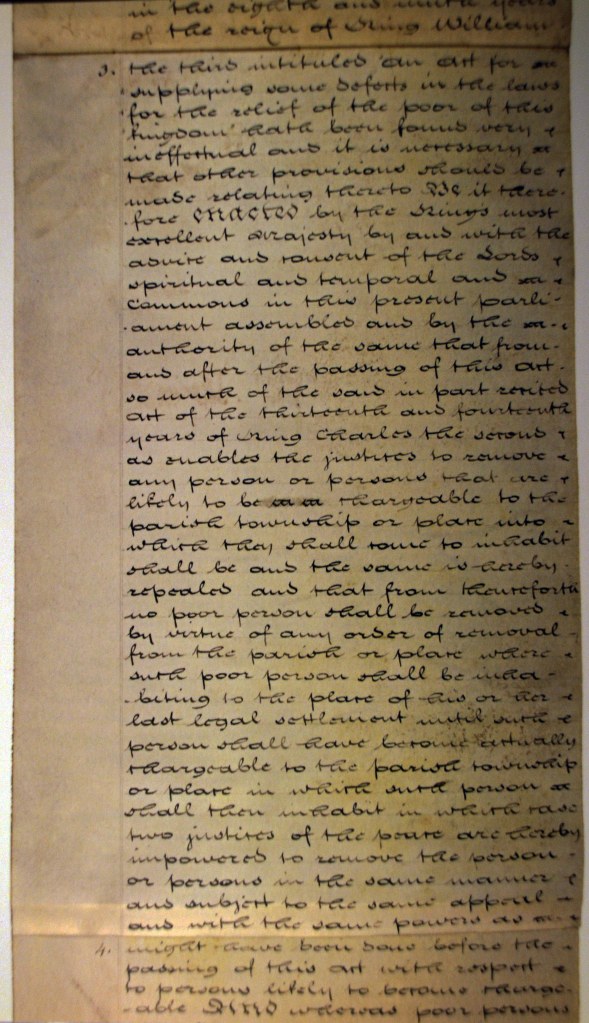 in the eighth and ninth years
of the reign of King William
3. the third intituled an act for
supplying some defects in the laws
for the relief of the poor of this
kingdom hath been found very
ineffectual and it is necessary
that other provisions should be
made relating thereto Be it there-
fore enacted by the Kings most
excellent Majesty by and with the
advice and consent of the Lords
spiritual and temporal and
Commons in this present parli-
-ament assembled and by the
authority of the same that from
and after the passing of this act
so much of the said in part recited
act of the thirteenth and fourteenth
years of King Charles the second
as enables the justices to remove
any person or persons that are
likely to be chargeable to the
parish township or place into
which they shall come to inhabit
shall be and the same is hereby
repealed and that from thenceforth
no poor person shall be removed
by virtue of any order of removal
from the parish or place where
such poor person shall be inha-
-biting to the place of his or her
last legal settlement until such
person shall have become actually
chargeable to the parish township
or place in which such person
shall then inhabit in which case
two justices of the peace are hereby
impowered to remove the person
or persons in the same manner
and subject to the same appeal
and with the same powers as
4. might have been done before the
passing of this act with respect
to persons likely to become charge-
-able And whereas poor persons